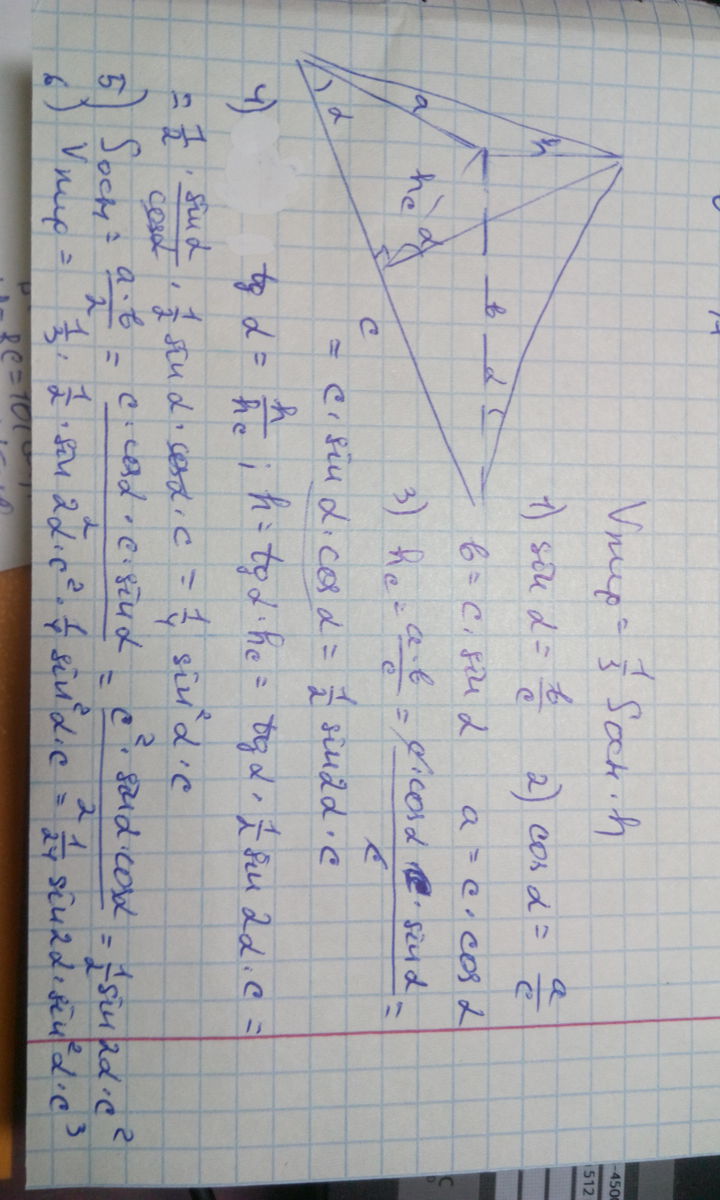 Vпир = 1/3 Sосн · h
1) sin α = в/c 2) cos α = a/c
в = c · sin α a = c · cos α
3) hc = a·в/c = c·cos α · c · sin α / c =
= c · sin α · cos α = 1/2 sin 2α · c
4) tg α = h/hc ; h = tg α · hc = tg α · 1/2 sin 2α · c =
= 1/2 · sin α/cos α · 1/2 sin α · cos α · c = 1/4 sin² α · c
5) Sосн = a·в/2 = c · cos α · c · sin α / 2 = c² · sin α · cos α / 2 = 1/2 sin 2α · c²
6) Vпир = 1/3 · 1/2 · sin 2α · c² · 1/4 sin² α · c = 1/24 sin 2α · sin² α · c³
a
h
hc
α
α
в
α
c
-450
512
C